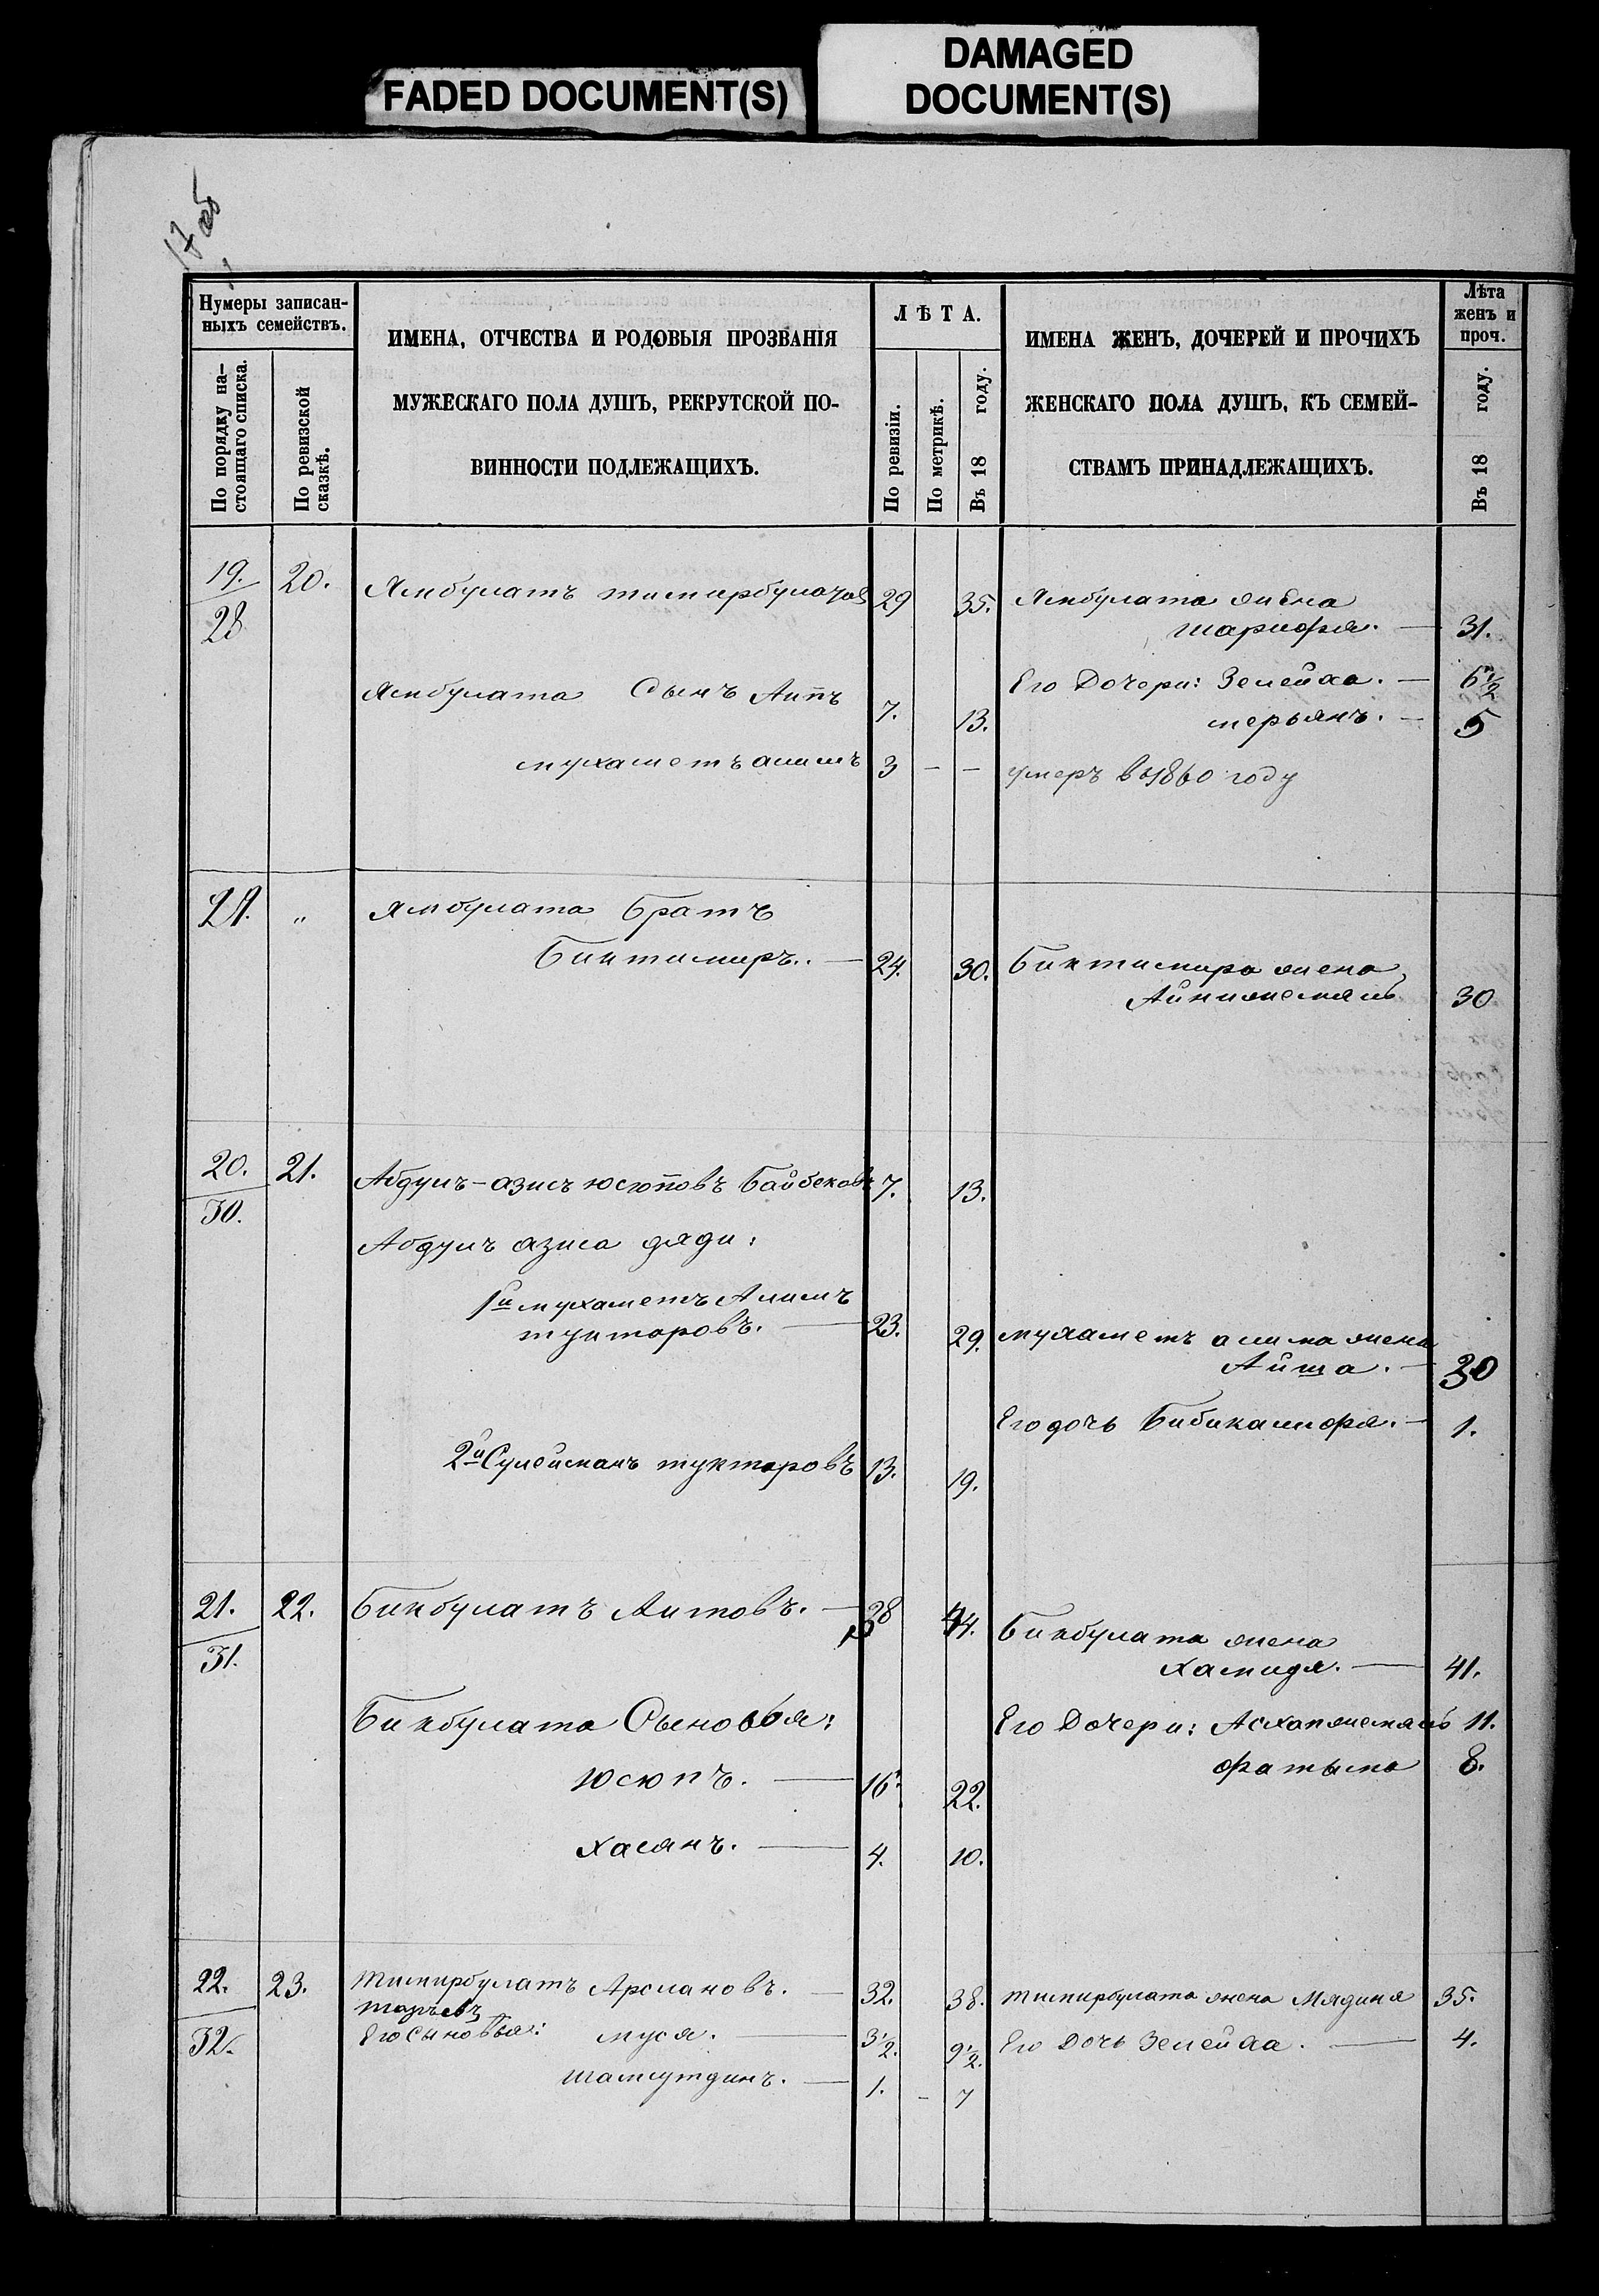 FADED DOCUMENT(S)
DAMAGED
DOCUMENT(S)
17 об
Нумеры записан-
ныхъ семействъ.
По порядку на-
стоящаго списка.
По ревизской
сказкѣ.
ИМЕНА, ОТЧЕСТВА И РОДОВЫЯ ПРОЗВАНІЯ
МУЖЕСКАГО ПОЛА ДУШЪ, РЕКРУТСКОЙ ПО-
ВИННОСТИ ПОДЛЕЖАЩИХЪ.
ЛѢТА.
По ревизіи.
По метрикѣ.
Въ 18 году.
ИМЕНА ЖЕНЪ, ДОЧЕРЕЙ И ПРОЧИХЪ
ЖЕНСКАГО ПОЛА ДУШЪ, КЪ СЕМЕЙ-
СТВАМЪ ПРИНАДЛЕЖАЩИХЪ.
Лѣта
женъ и
проч.
Въ 18 году.
19. 20. Ямбулатъ тимирбулатов 29 35. Ямбулата жена
28 шарифя. — 31.
Его Дочери: Зелейха. — 6 1/2
Ямбулата Сынъ Аипъ 7. 13. мерьянъ. — 5
мухаметъ алимъ 3 — — умеръ в 1860 году
29. " Ямбулата Братъ
Биктимиръ. — 24. 30. Биктимира жена
Айнижемялъ 30
20. 21. Абдулъ-азисъ юсюповъ Байбековъ 7. 13.
30.
Абдулъ азиса дяди:
1й мухаметъ Алимъ
туктаровъ. — 23. 29. мухаметъ алима жена
Айша. — 30
Его дочь Бибикамфря. — 1.
2й Сулейманъ туктаровъ 13. 19.
21. 22. Бикбулатъ Аитовъ. — 38 44. Бикбулата жена
31. хамидя. — 41.
Бикбулата Сыновья: Его Дочери: Асхапжемялъ 11.
фатыма 8.
Юсюпъ. — 16. 22.
хасянъ. — 4. 10.
22. 23. Тимирбулатъ Арслановъ. — 32. 38. тимирбулата жена Мядиня 35.
32. Его Сыновья: муся. — 3 1/2. 9 1/2. Его Дочь Зелейха. — 4.
шамсутдинъ. — 1. — 7